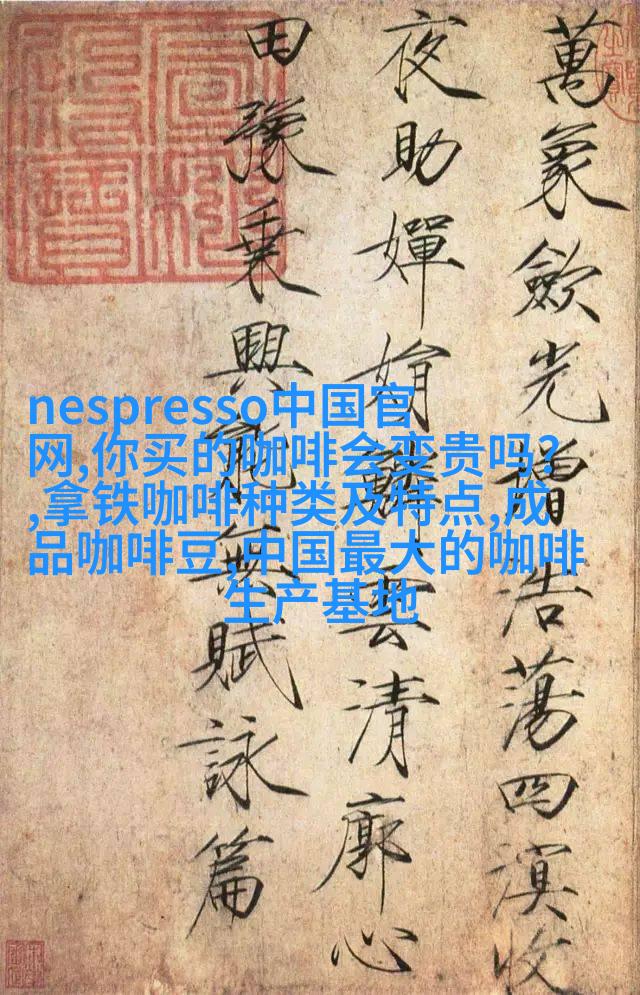 萬象歛光增浩蕩四溟收
夜助嬋娟鱗雲清廓心
田豫乘興能無賦詠篇
nespresso中国官
网,你买的咖啡会变贵吗?
,拿铁咖啡种类及特点,成
品咖啡豆,中国最大的咖啡
生产基地